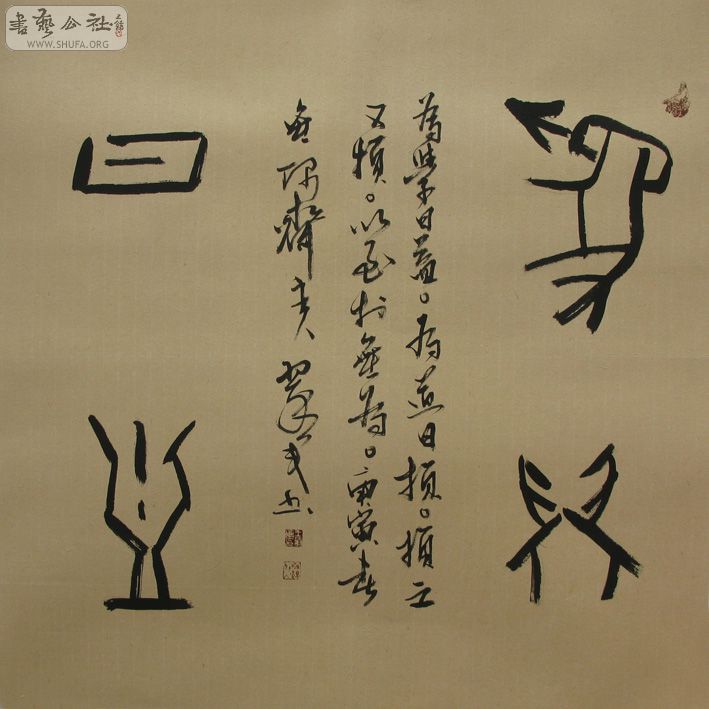 書藝公社
WWW.SHUFA.ORG
為學
日益
為學日益。為道日損。損之
又損。以至於無為。庚寅春
無隅齋